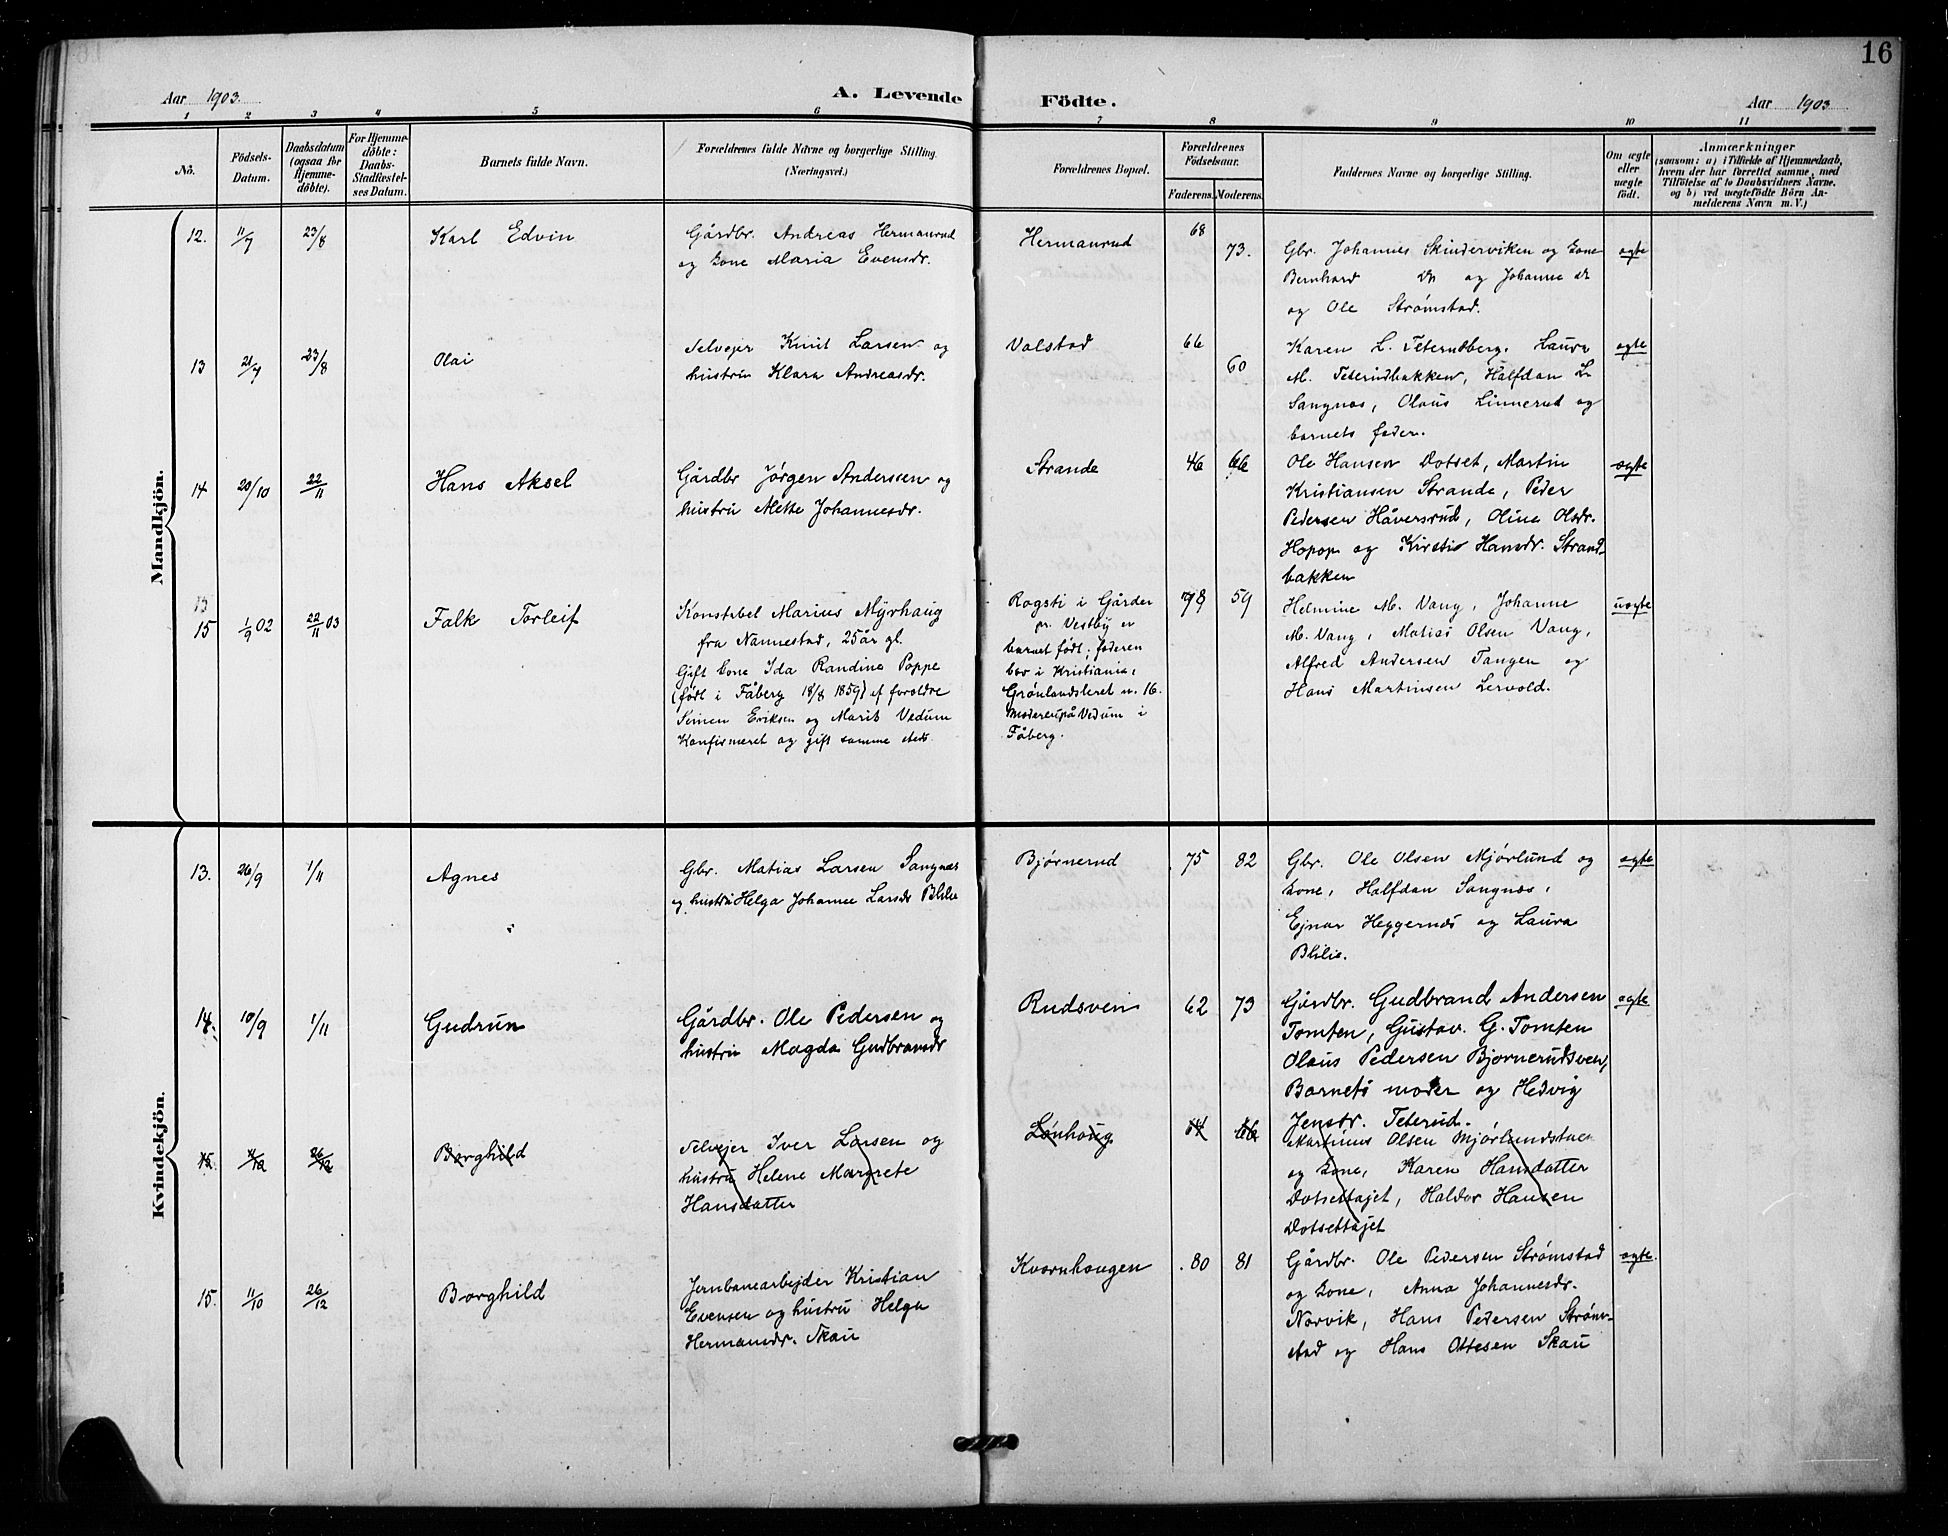 16
Aar 1903. A. Levende Födte. Aar 1903
1 2 3 4 5 6 7 8 9 10 11
No.
Födsels-
Datum.
Daabsdatum
(ogsaa for
Hjemme-
döbte).
For Hjemme-
döbte:
Daabs-
Stadfæstel-
ses Datum.
Barnets fulde Navn.
Forældrenes fulde Navne og borgerlige Stilling
(Næringsvei.)
Forældrenes Bopæl.
Forældrenes
Födselsaar.
Faderens. Moderens.
Faddernes Navne og borgerlige Stilling.
Om ægte
eller
uægte
födt.
Anmærkninger
(saasom: a) i Tilfælde af Hjemmedaab,
hvem der har forrettet samme, med
Tilföielse af to Daabsvidners Navne,
og b) ved uægtefödte Börn An-
melderens Navn m. V.)
Mandkjön.
12. 11/7 23/8 Karl Edvin
Gårdbr. Andreas Hermanrud
og kone Maria Evensdr.
Hermanrud 68 73.
Gbr. Johannes Skinderviken og kone
Bernhard Do og Johanne do
og Ole Strømstad.
ægte
13 21/7 23/8 Olai
Selvejer Knut Larsen og
hustru Klara Andreasdr.
Valstad 66 60
Karen L. Teterudberg. Laura
M. Teterudbakken, Halfdan L.
Sangnæs, Olaus Linnerud og
barnets fader.
ægte
14 20/10 22/11 Hans Aksel
Gårdbr Jørgen Anderssen og
hustru Mette Johannesdr.
Strande 46 66
Ole Hansen Dotset, Martin
Kristiansen Strande, Peder
Pedersen Håversrud, Olina Olsdr.
Hopop og Kirstie Hansdr. Strand-
bakken
ægte
15
15 1/9 02 22/11 03 Falk Torleif
Konstabel Marius Myrhaug
fra Nannestad, 25 år gl.
Gift kone Ida Randina Poppe
(født i Fåberg 18/8 1859) af foroldre
Simen Eriksen og Marit Vedum
Konfirmeret og gift samme steds.
Rogsti i Gårder
pr. Vestby er
barnet født; faderen
bor i Kristiania,
Grønlandsleret n. 16.
Moderen på Vedum i
Fåberg.
78 59
Helmine M. Vang, Johanne
M. Vang, Matias Olsen Vang,
Alfred Andersen Tangen og
Hans Martinsen Lervold.
uægte
Kvindekjön.
13. 26/9 1/11 Agnes
Gbr. Matias Larsen Sangnæs
og hustru Helga Johanne Larsdr Blilie
Bjørnerud 75 82
Gbr. Ole Olsen Mjørlund og
kone, Halfdan Sangnæs,
Ejnar Heggernæs og Laura
Blilie.
ægte
14. 10/9 1/11 Gudrun
Gårdbr. Ole Pedersen og
hustru Magda Gudbransdr
Rudsvein 62 73
Gårdbr. Gudbrand Andersen
Tomten, Gustav. G. Tomten
Olaus Pedersen Bjørnerudsven,
Barnets moder og Hedvig
Jensdr. Teterud.
ægte
15. 26/12 Borghild
Selvejer Iver Larsen og
hustru Helene Margrete
Hansdatter
Lønhoug 66
Martinus Olsen Mjørlundstuen
og kone, Karen Hansdatter
Dotsettajet, Haldor Hansen
Dotsettajet
15. 11/10 26/12 Borghild
Jernbanearbejder Kristian
Evensen og hustru Helga
Hermansdr. Skau
Kvernhougen 80 81
Gårdbr. Ole Pedersen Strømstad
og kone, Anna Johannesdr.
Norvik, Hans Pedersen Strøm-
stad og Hans Ottesen Skau
ægte.